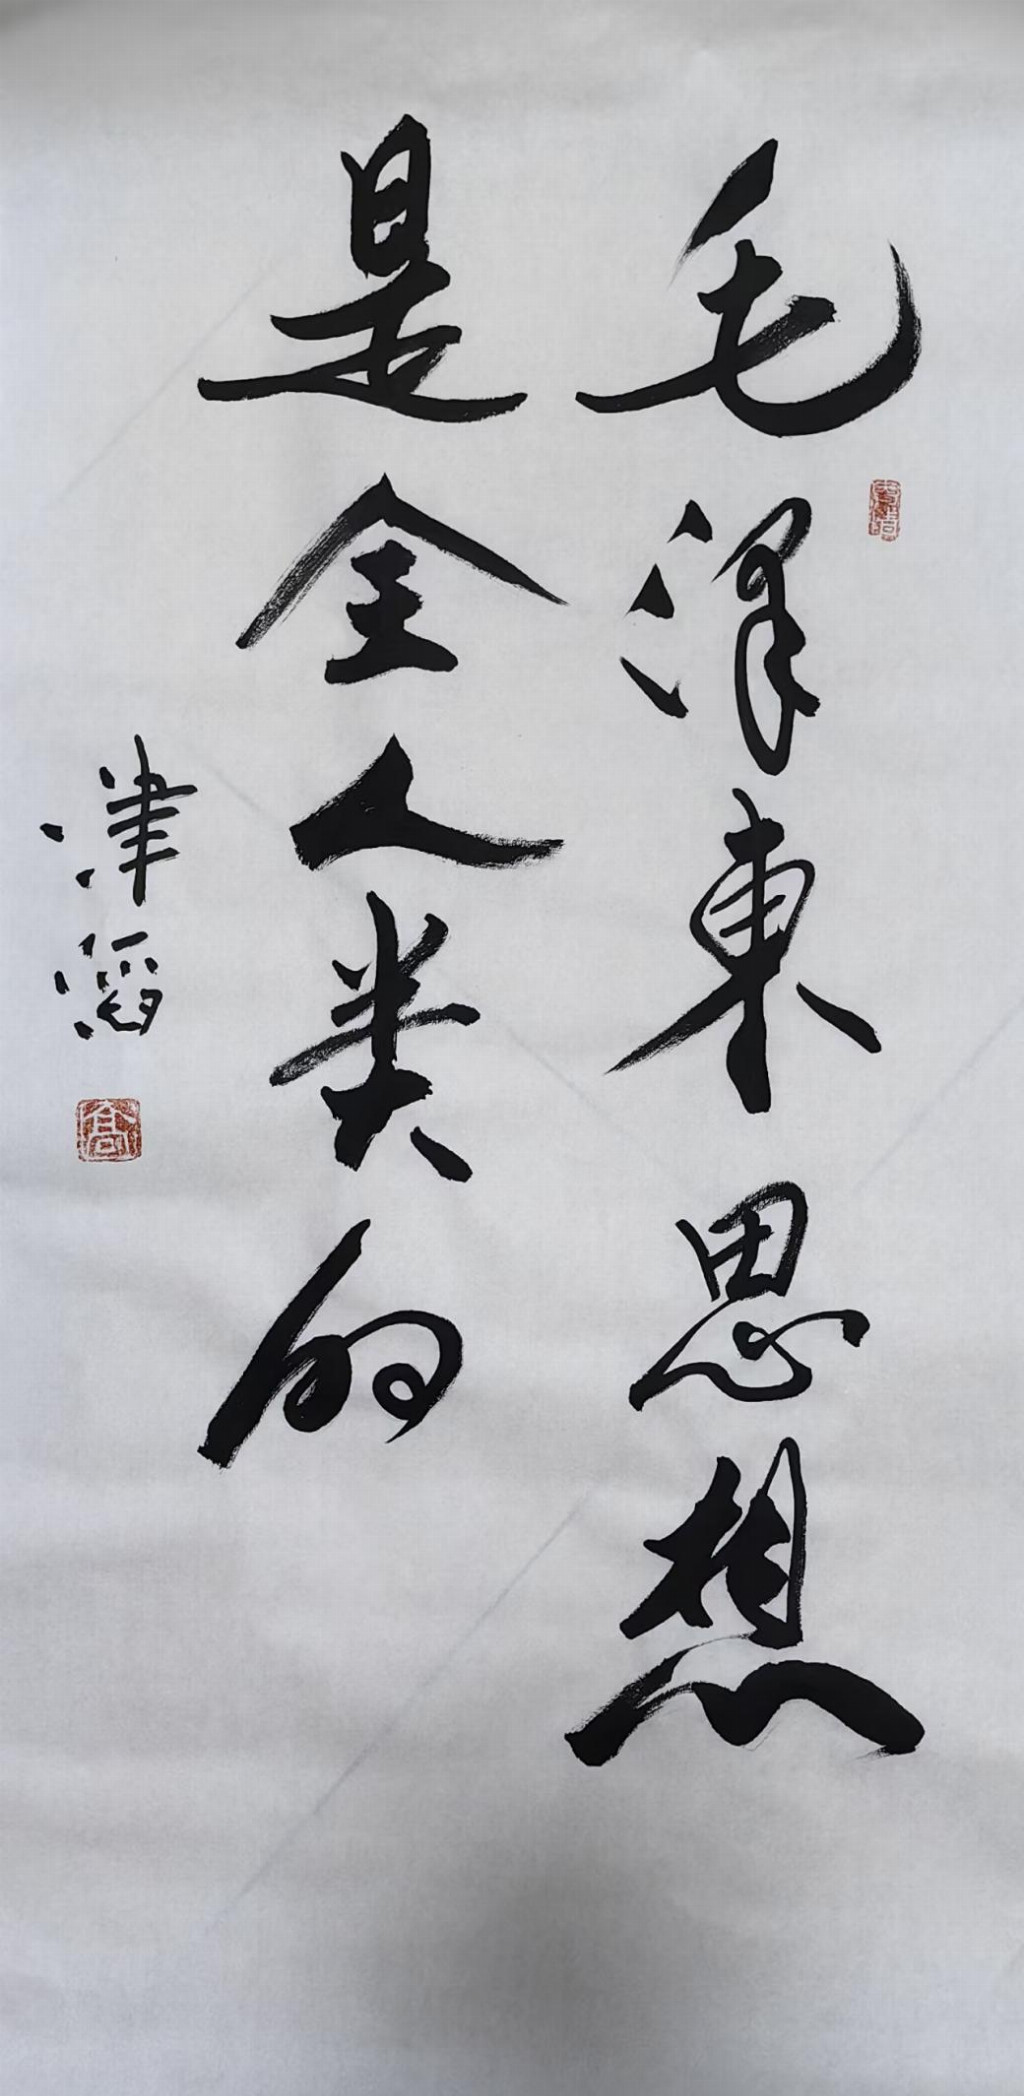 毛澤東思想
是全人类的
津滔
髙